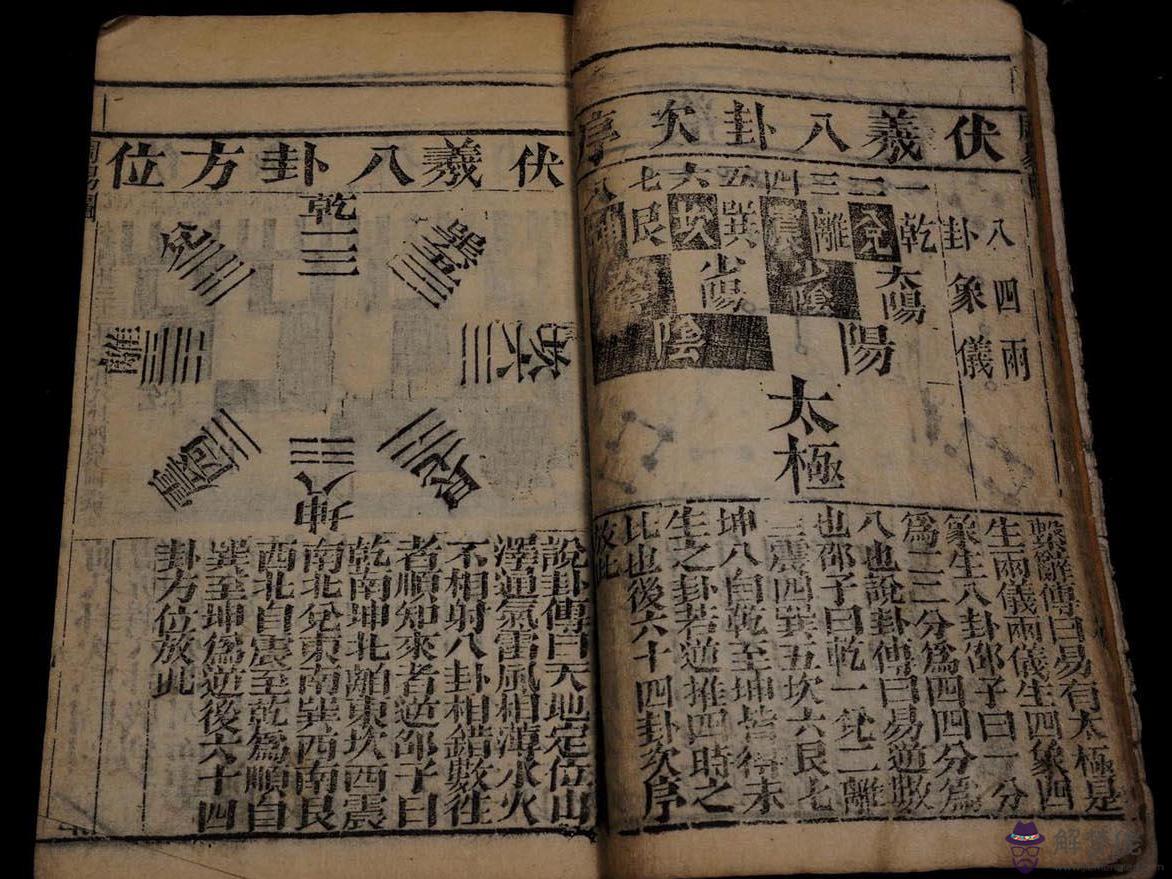 伏羲八卦次序
八卦
四象
兩儀
一二三四五六七八
乾兌離震巽坎艮坤
太陽
少陰
少陽
陽
陰
太極
繫辭傳曰易有太極是
生兩儀兩儀生四象四
象生八卦邵子曰一分
爲二二分爲四四分爲
八也說卦傳曰易逆數
也邵子曰乾一兌二離
三震四巽五坎六艮七
坤八自乾至坤皆得未
生之卦若逆推四時之
比也後六十四卦次序
放此
伏羲八卦方位
乾一
巽五
坎六
艮七
坤八
震四
離三
兌二
說卦傳曰天地定位山
澤通氣雷風相薄水火
不相射八卦相錯數往
者順知來者逆邵子曰
乾南坤北離東坎西震
東北兌東南巽西南艮
西北自震至乾爲順自
巽至坤爲逆後六十四
卦方位放此
周易圖